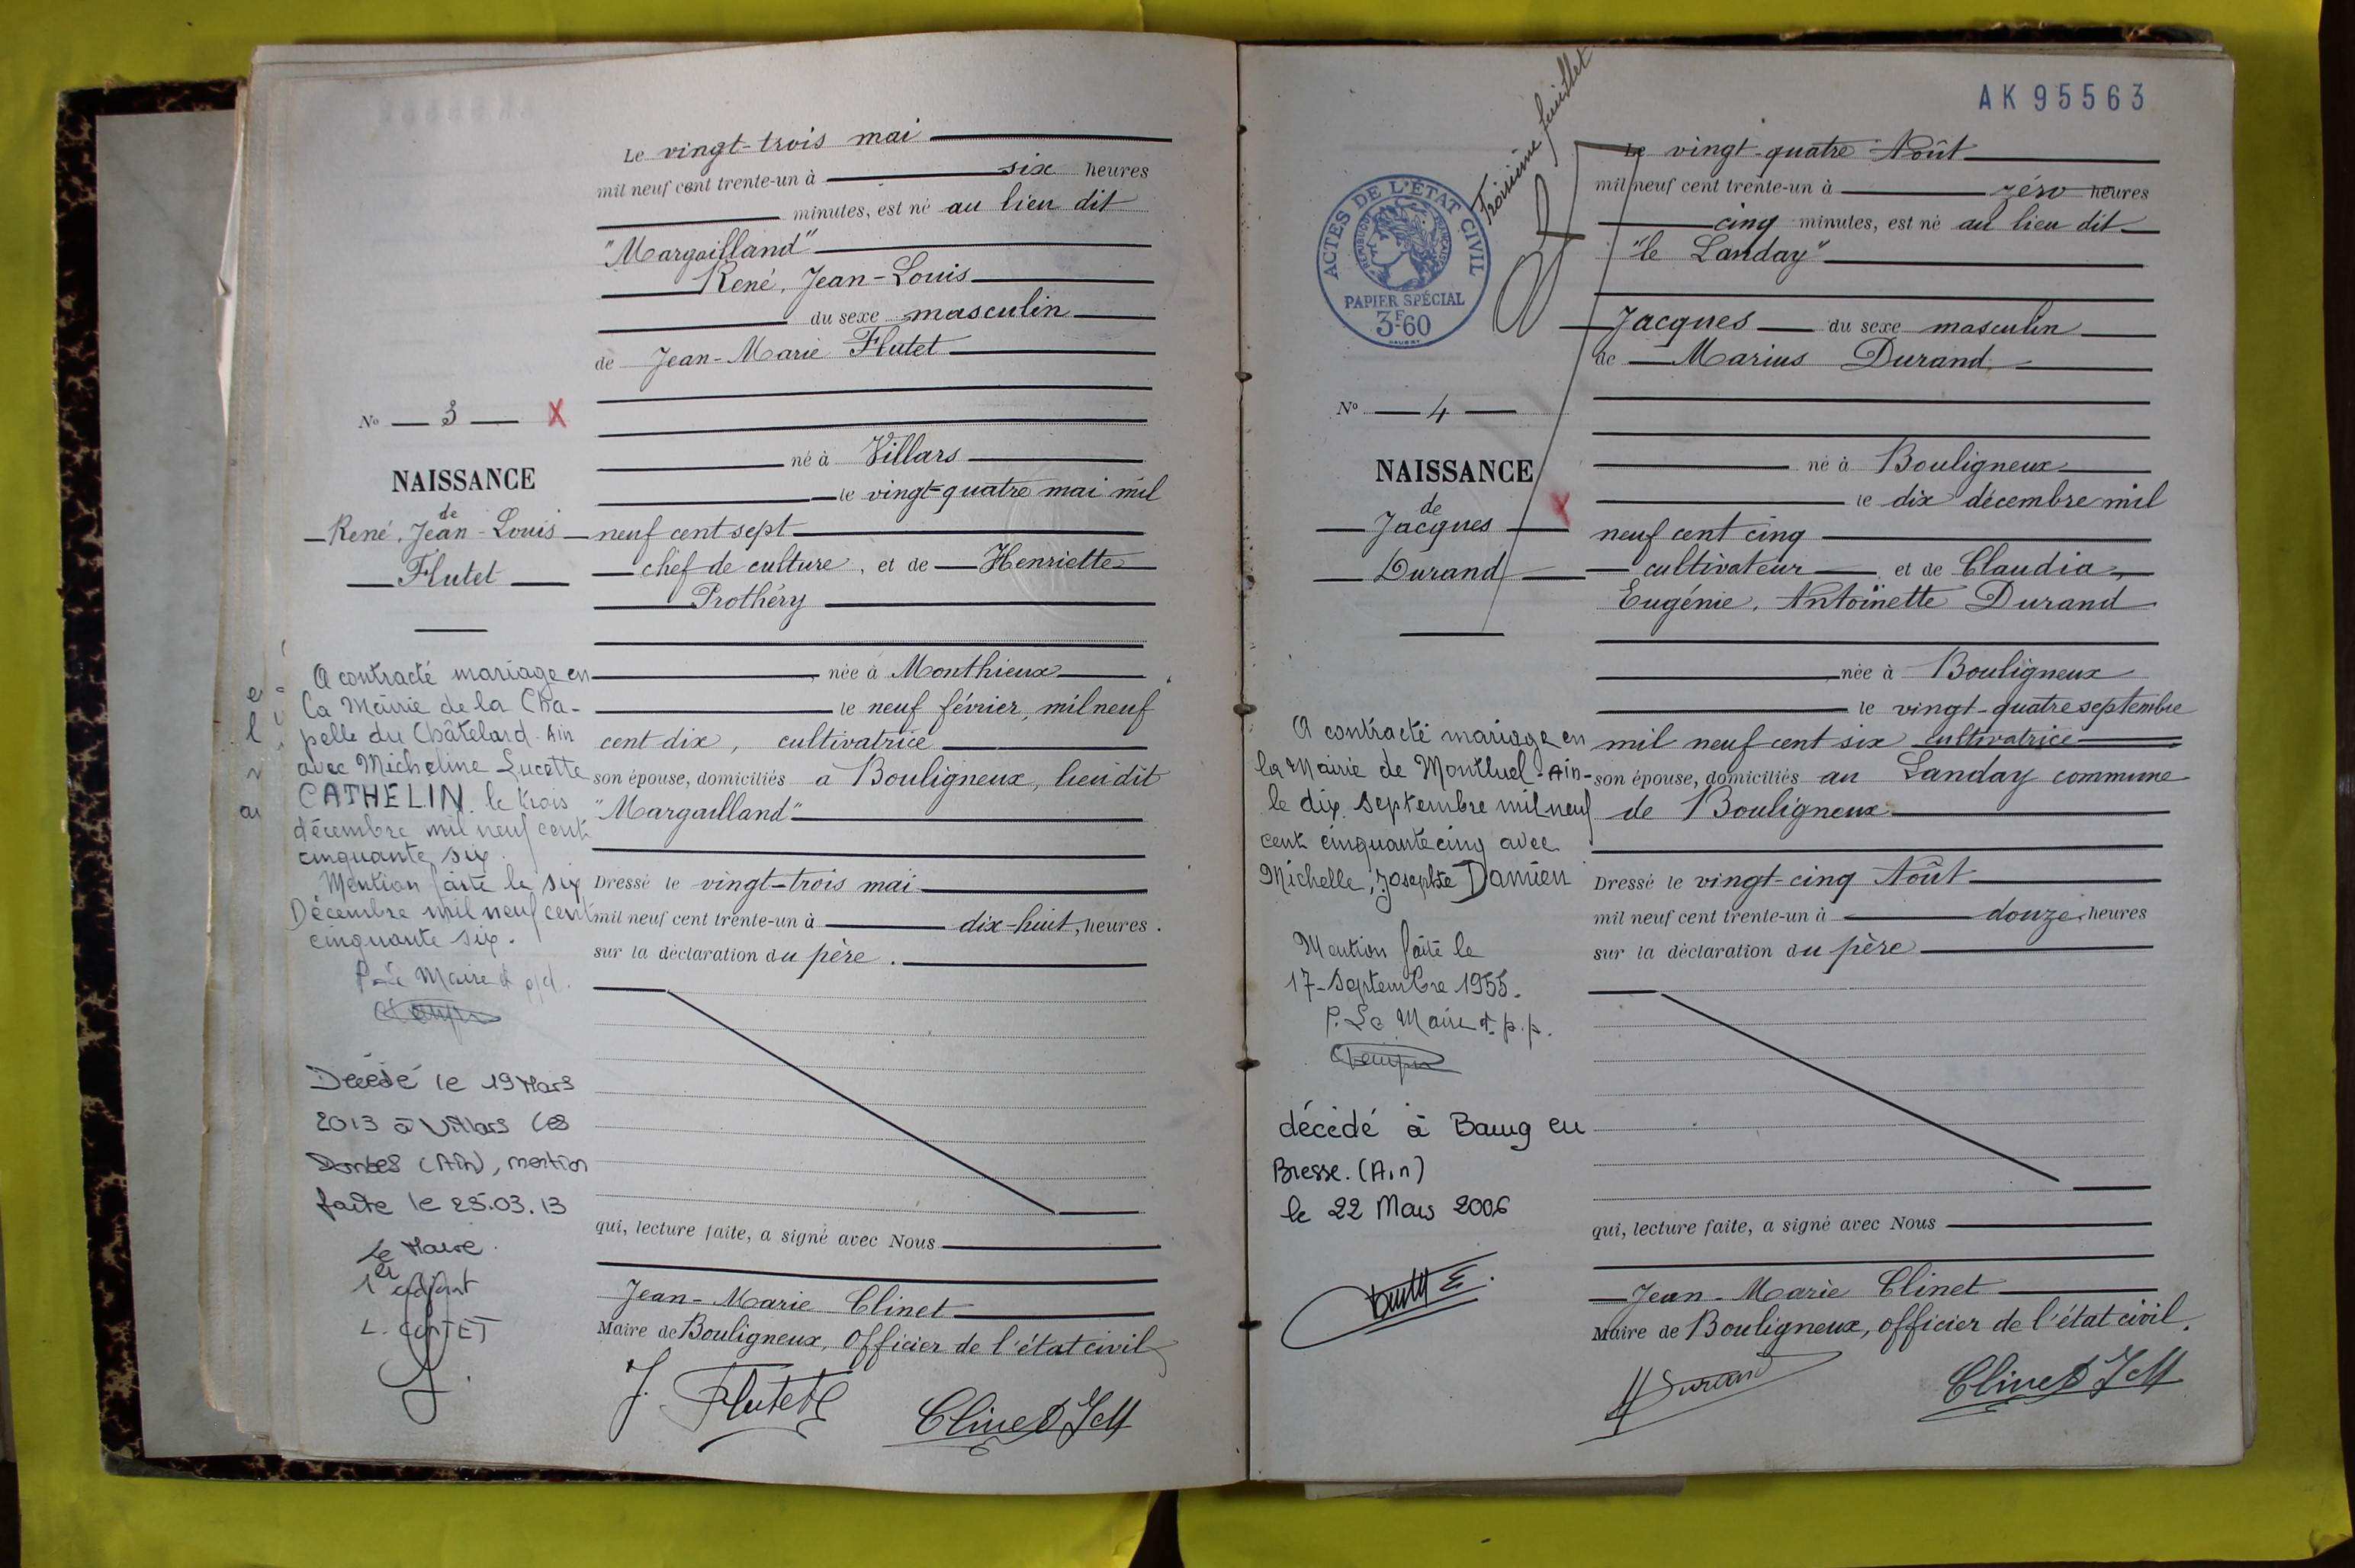 Le vingt-trois mai
mil neuf cent trente-un à six heures
minutes, est né au lieu dit
"Margailland"
René, Jean-Louis
du sexe masculin
de Jean-Marie Flutet
né à Villars
le vingt-quatre mai mil
neuf cent sept
chef de culture, et de Henriette
Prothéry
née à Monthieux
le neuf février, mil neuf
cent dix, cultivatrice
son épouse, domiciliés à Bouligneux, lieu dit
"Margailland"
Dressé le vingt-trois mai
mil neuf cent trente-un à dix-huit, heures.
sur la déclaration du père.
qui, lecture faite, a signé avec Nous
Jean-Marie Clinet
Maire de Bouligneux, Officier de l'état civil
J. Flutet
Clinet J M
No 3 X
NAISSANCE
de
René, Jean-Louis
Flutet
A contracté mariage en
la Mairie de la Cha-
pelle du Châtelard-Ain
avec Micheline Lucette
CATHELIN le trois
décembre mil neuf cent
cinquante six.
Mention faite le six
Décembre mil neuf cent
cinquante six.
P. Le Maire
Décédé le 19 Mars
2013 à Villars les
Dombes (Ain), mention
faite le 25.03.13
Le Maire.
1er adjoint
AK 95563
Troisième feuillet
ACTES DE L'ÉTAT CIVIL
RÉPUBLIQUE FRANÇAISE
PAPIER SPÉCIAL
3F60
Le vingt-quatre Août
mil neuf cent trente-un à zéro heures
cinq minutes, est né au lieu dit
"le Landay"
Jacques du sexe masculin
de Marius Durand
né à Bouligneux
le dix décembre mil
neuf cent cinq
cultivateur et de Claudia,
Eugénie, Antoinette Durand
née à Bouligneux
le vingt-quatre septembre
mil neuf cent six cultivatrice
son épouse, domiciliés au Landay commune
de Bouligneux
Dressé le vingt-cinq Août
mil neuf cent trente-un à douze heures
sur la déclaration du père
qui, lecture faite, a signé avec Nous
Jean-Marie Clinet
Maire de Bouligneux, officier de l'état civil.
M Durand
Clinet J M
No 4
NAISSANCE
de
Jacques X
Durand
A contracté mariage en
la Mairie de Montluel-Ain-
le dix septembre mil neuf
cent cinquante cinq avec
Michelle, Josephte Damien
Mention faite le
17-septembre 1955.
P. Le Maire
décédé à Bourg en
Bresse. (Ain)
le 22 Mars 2006